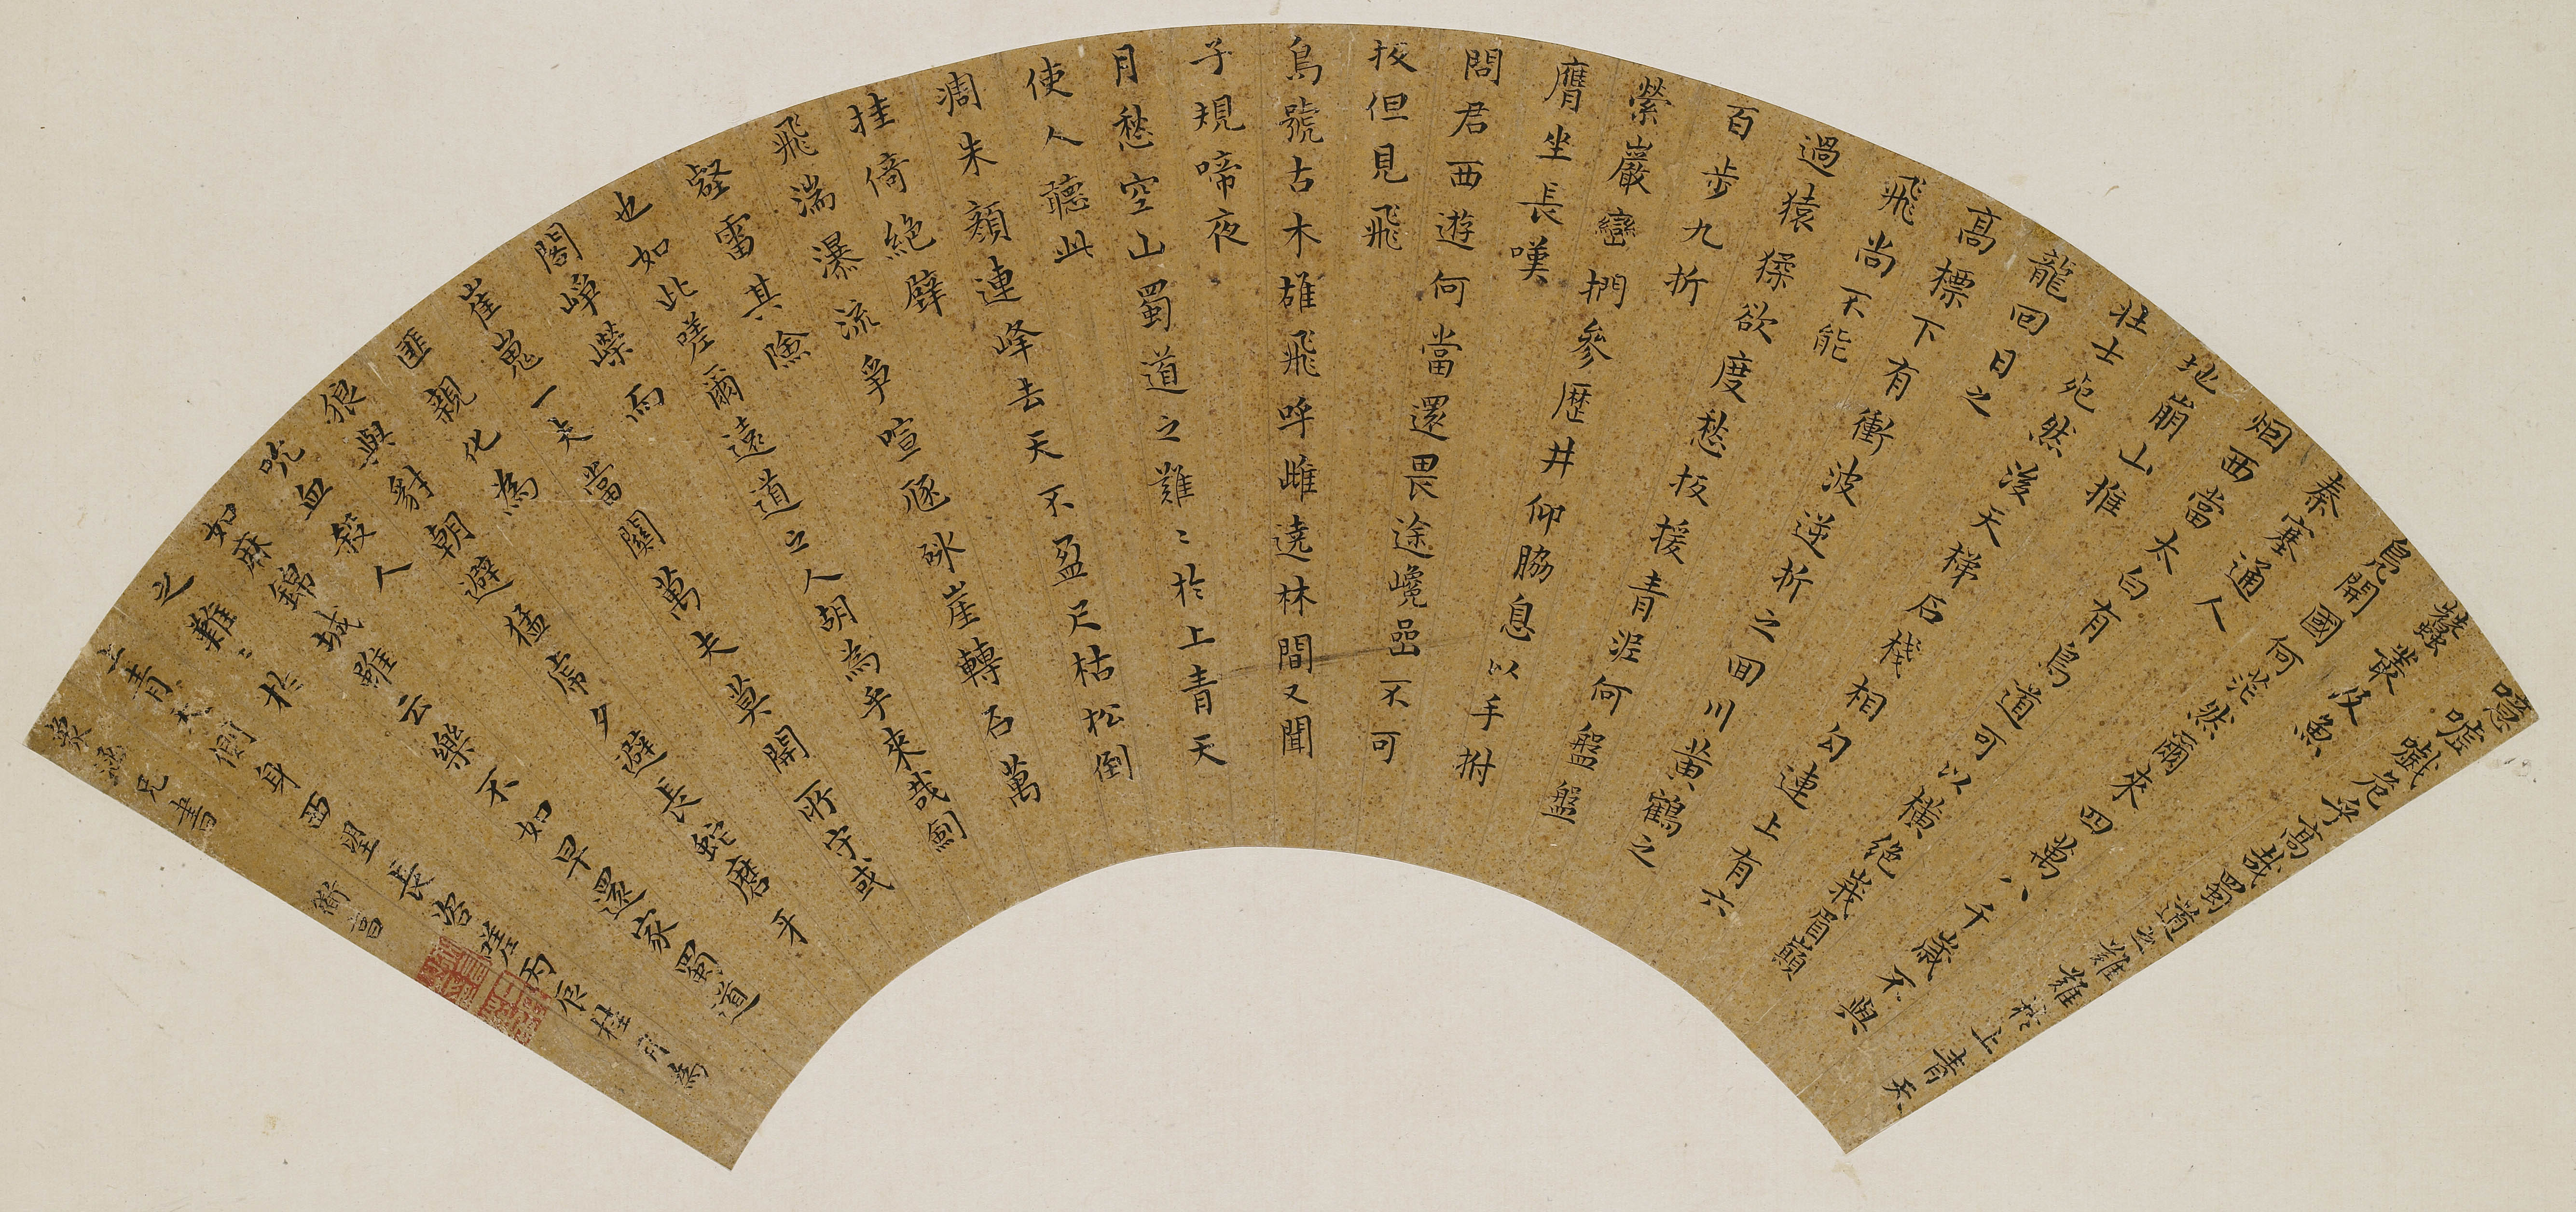 噫嘘嚱危乎高哉蜀道之難難於上青天
蠶叢及魚
鳧開國何茫然爾來四萬八千歲不與
秦塞通人
烟西當太白有鳥道可以橫絕峩眉巔
地崩山摧
壯士死然後天梯石棧相勾連上有六
龍回日之
高標下有衝波逆折之回川黃鶴之
飛尚不能
過猿猱欲度愁扳援青泥何盤盤
百步九折
縈巖巒捫參歷井仰脇息以手拊
膺坐長嘆
問君西遊何當還畏途巉喦不可
扳但見飛
鳥號古木雄飛呼雌遶林間又聞
子規啼夜
月愁空山蜀道之難〻於上青天
使人聽此
凋朱顏連峰去天不盈尺枯松倒
挂倚絕壁
飛湍瀑流爭喧豗砯崖轉石萬
壑雷其險
也如此嗟爾遠道之人胡為乎來哉劍
閣崢嶸而
崔嵬一夫當關萬夫莫開所守或
匪親化為
狼與豺朝避猛虎夕避長蛇磨牙
吮血殺人
如麻錦城雖云樂不如早還家蜀道
之難〻於
上青天側身西望長咨嗟丙辰桂月為
兄書